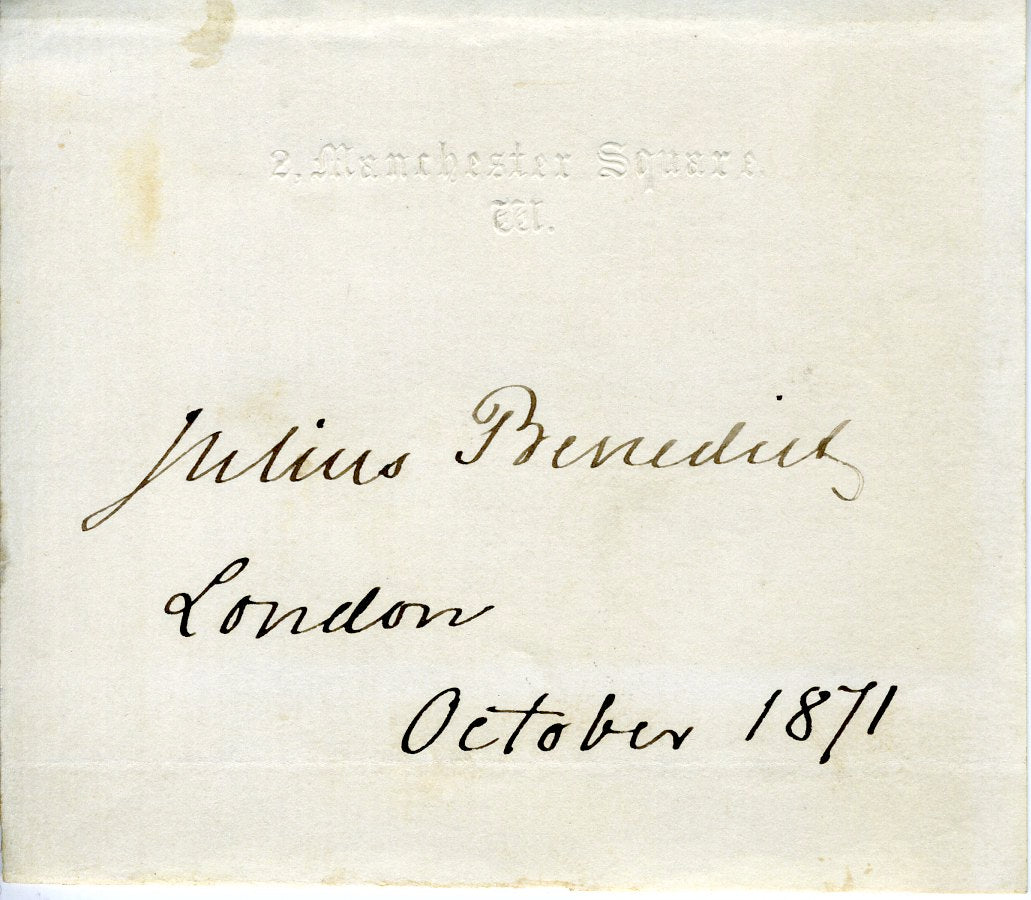 2, Manchester Square.
W.
Julius Benedict
London
October 1871